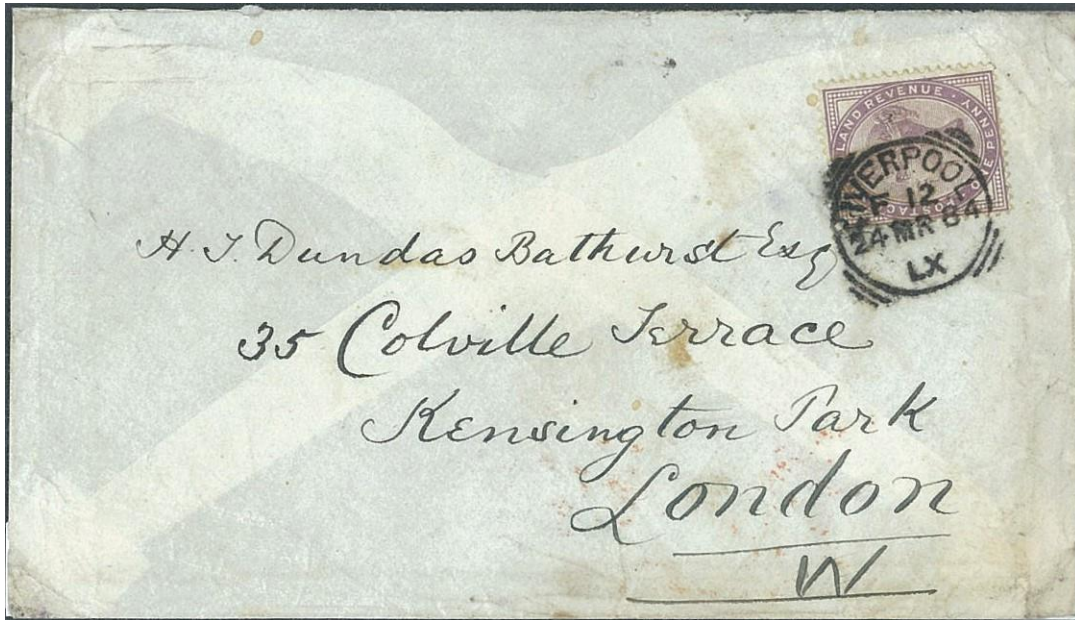 INLAND REVENUE · ONE PENNY
LIVERPOOL
F 12
24 MR 84
LX
H. J. Dundas Bathurst Esq
35 Colville Terrace
Kensington Park
London
W